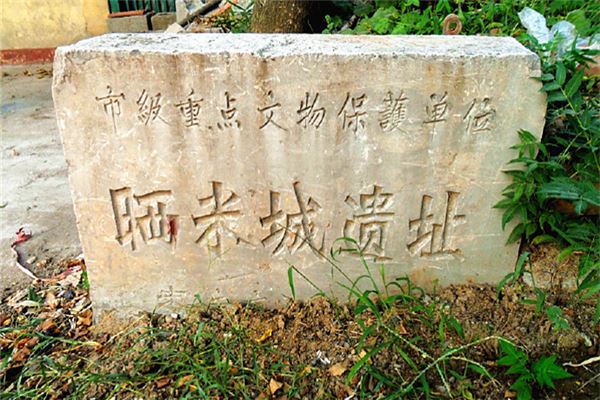 市級重点文物保護单位
晒米城遗址